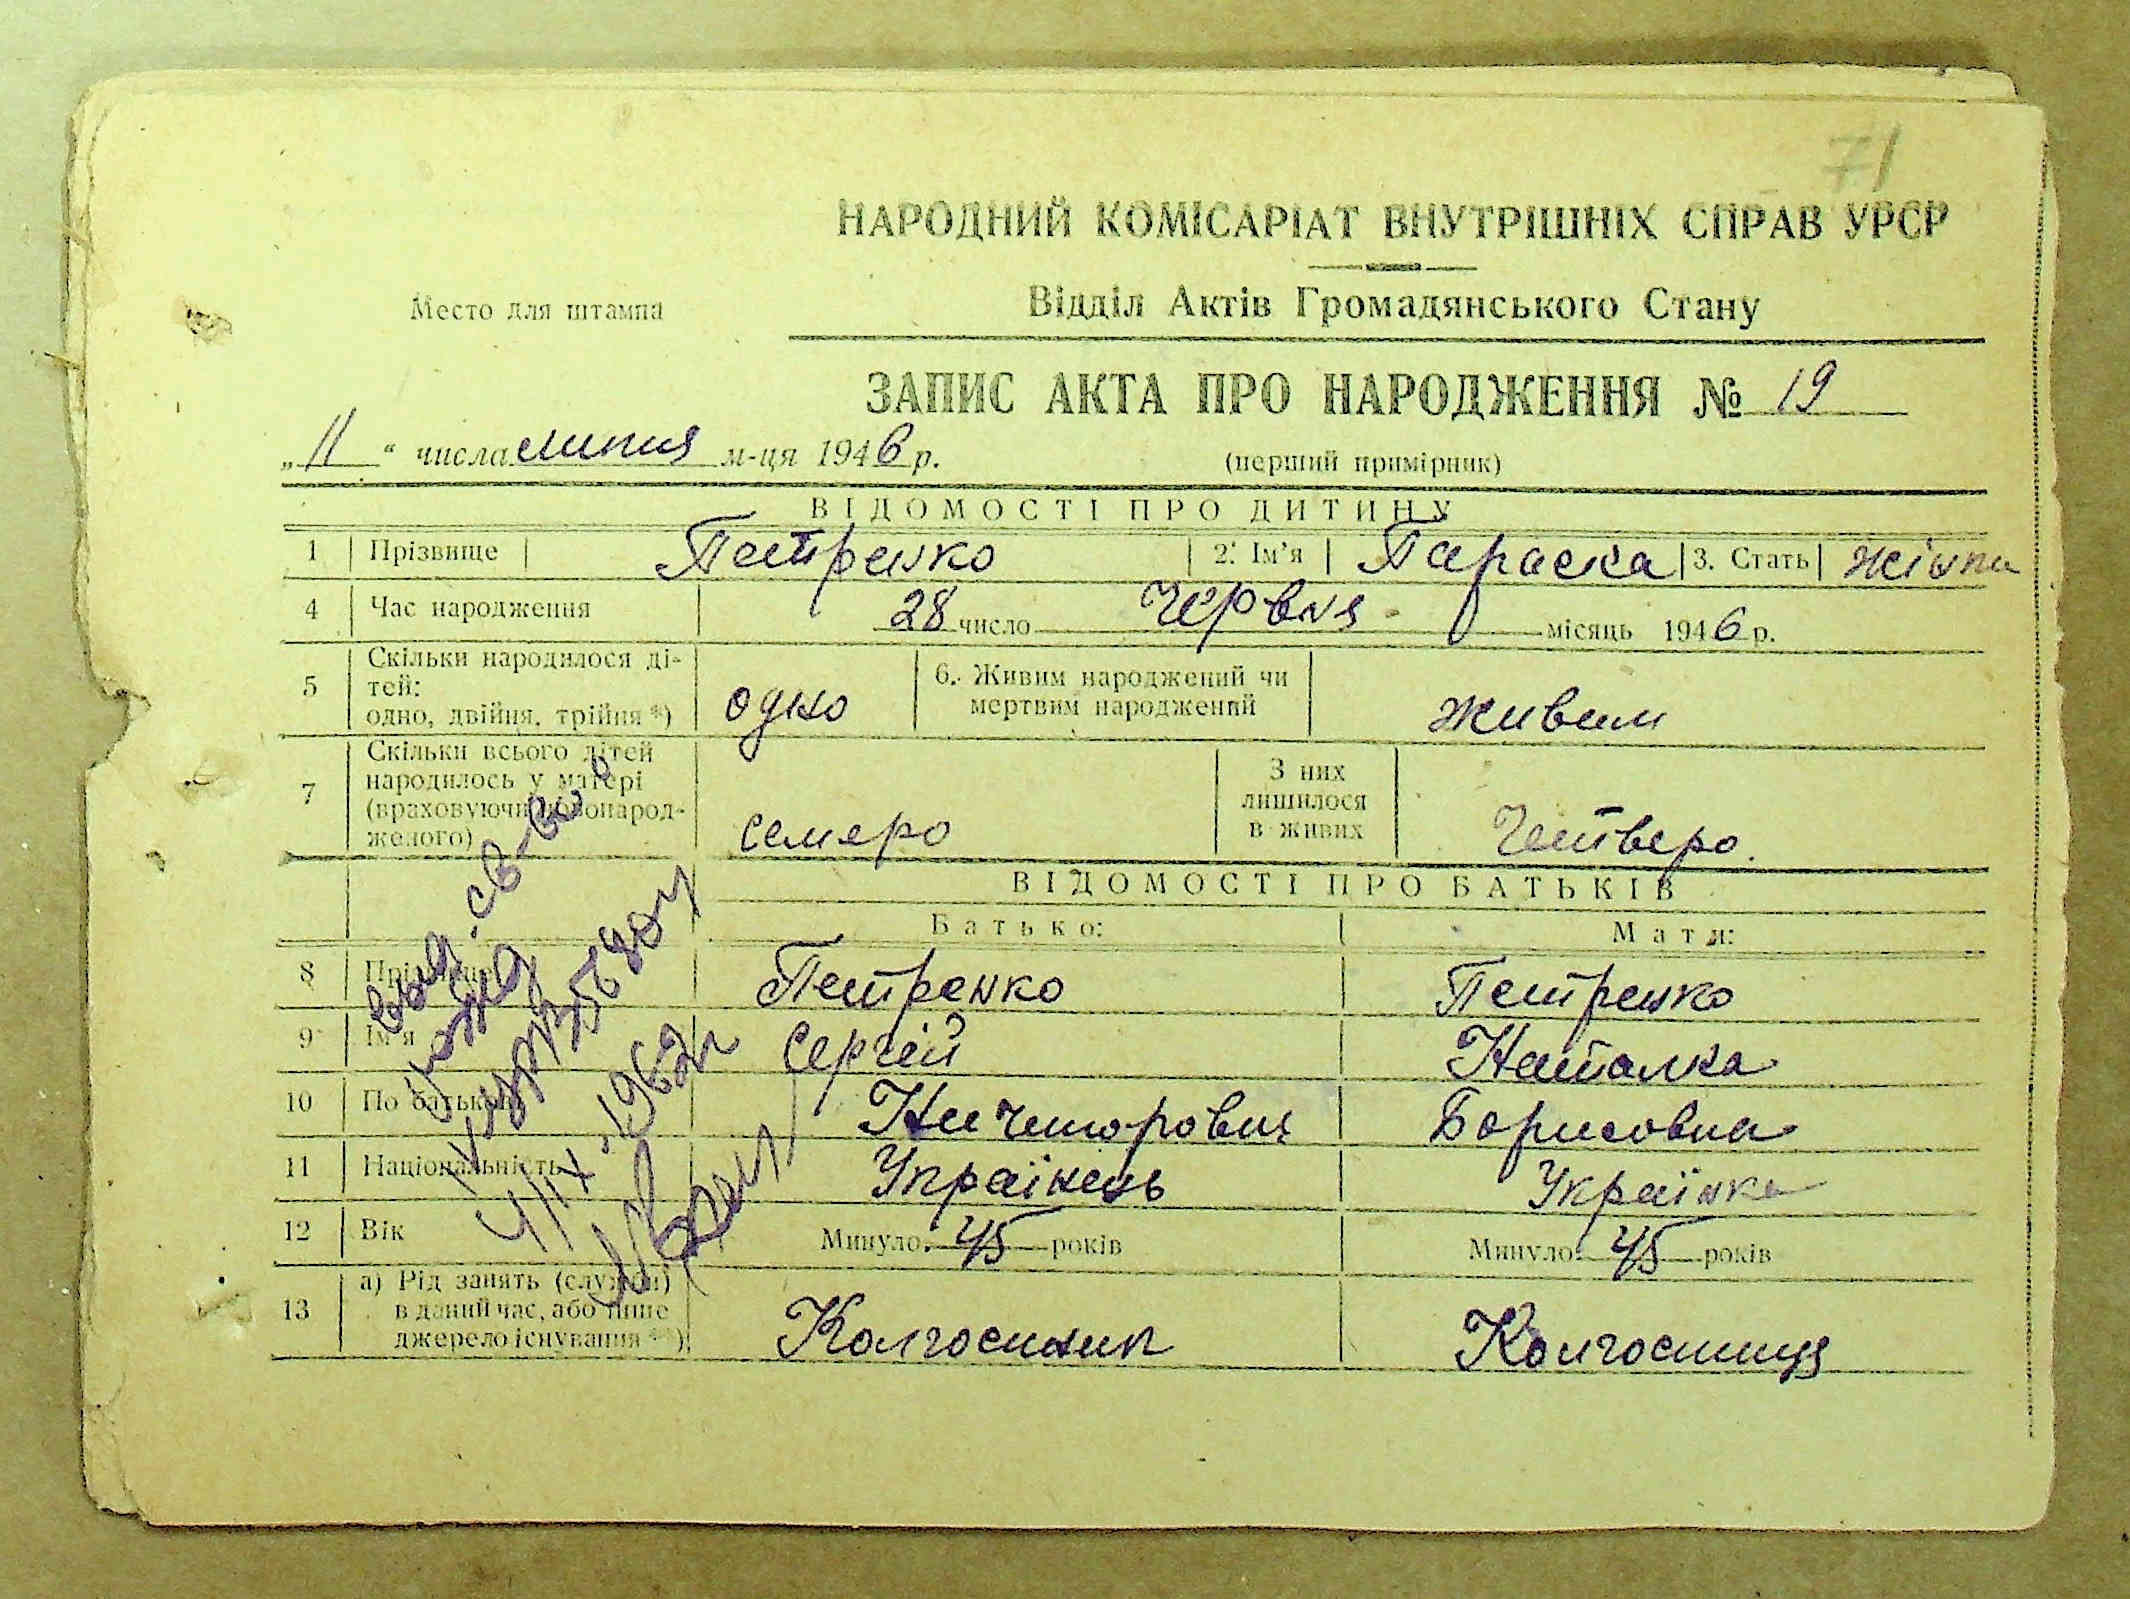 71
НАРОДНИЙ КОМІСАРІАТ ВНУТРІШНІХ СПРАВ УРСР
Место для штампа
Відділ Актів Громадянського Стану
ЗАПИС АКТА ПРО НАРОДЖЕННЯ № 19
„11“ числа липня м-ця 1946 р.
(перший примірник)
ВІДОМОСТІ ПРО ДИТИНУ
1 Прізвище Петренко 2. Ім'я Параска 3. Стать жіноч
4 Час народження 28 число Червня місяць 1946 р.
5 Скільки народилося ді-
тей:
одно, двійня, трійня *) одно
6. Живим народжений чи
мертвим народжений живим
7 Скільки всього дітей
народилось у матері
(враховуючи новонарод-
женого) семеро
З них
лишилося
в живих Четверо.
ВІДОМОСТІ ПРО БАТЬКІВ
Батько: Мати:
8 Прізвище Петренко Петренко
9 Ім'я Сергій Наталка
10 По батькові Ничипорович Борисовна
11 Національність Українець Українка
12 Вік Минуло 45 років Минуло 45 років
13 а) Рід занять (служби)
в даний час, або інше
джерело існування **) Колгоспник Колгоспниця
выд. св-во
4/IX-1962г